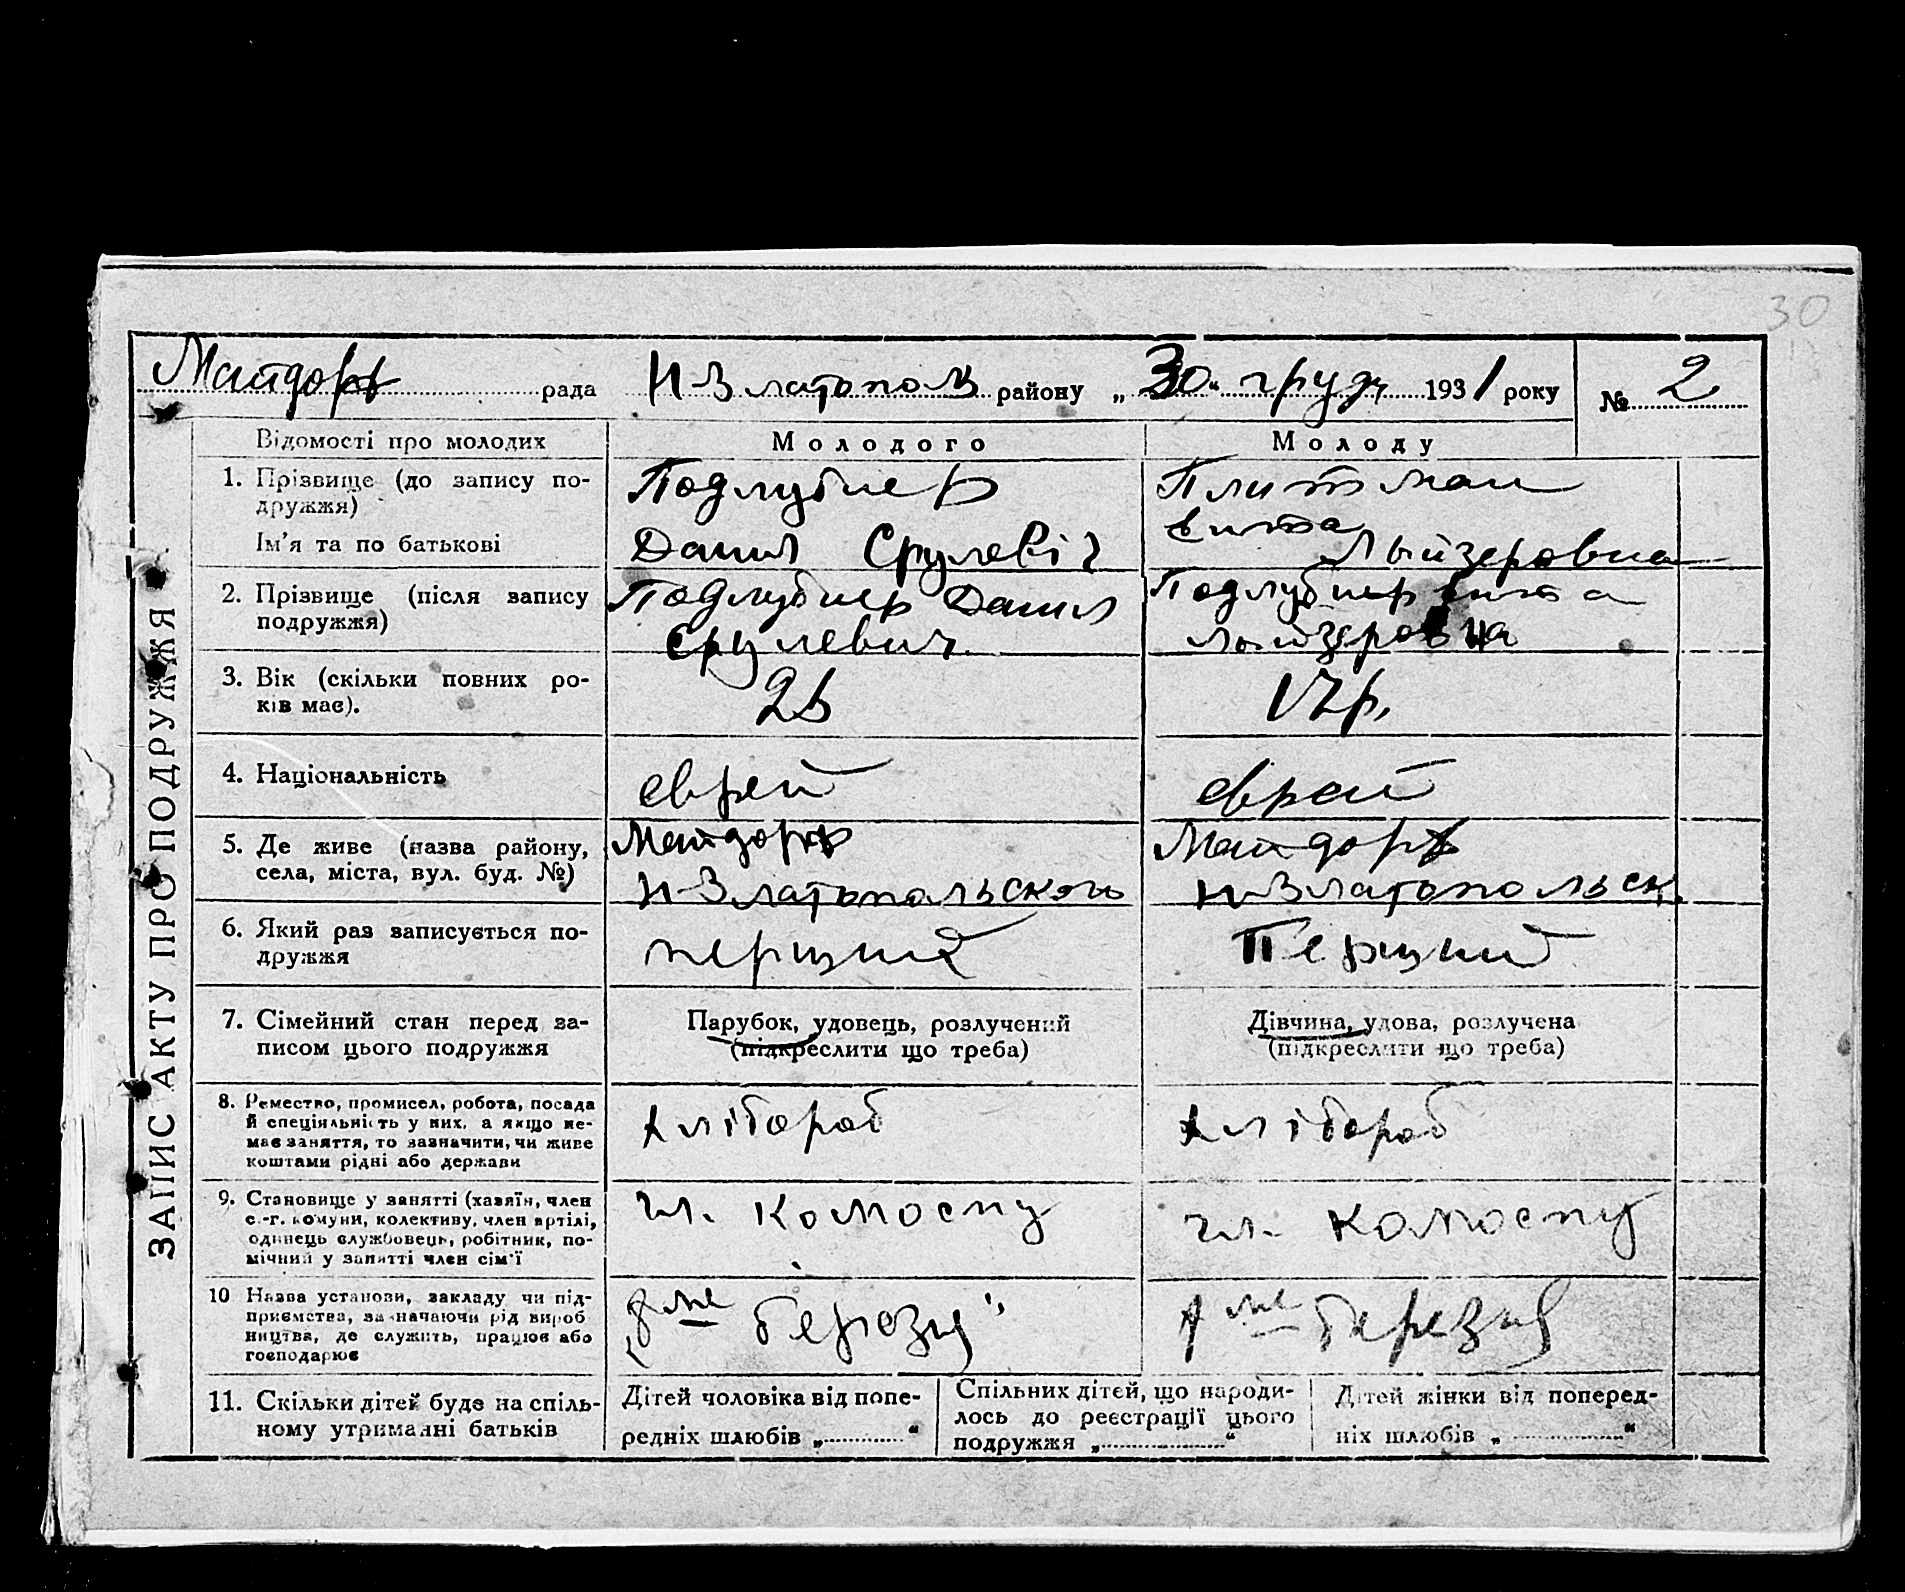 30
Майдорф рада Н-Златопол району „30“ грудн 1931 року № 2
ЗАПИС АКТУ ПРО ПОДРУЖЖЯ
Відомості про молодих Молодого Молоду
1. Прізвище (до запису по- Подлубнер Плитман
дружжя)
Ім'я та по батькові Данил Срулевіч Лыйзеровна
2. Прізвище (після запису Подлубнер Данил Подлубнер
подружжя) Срулевич Лыйзеровна
3. Вік (скільки повних ро- 17р.
ків має).
4. Національність еврей еврей
5. Де живе (назва району, Майдорф Майдорф
села, міста, вул. буд. №) Н-Златопольского Н-Златопольск.
6. Який раз записується по- перший Перший
дружжя
7. Сімейний стан перед за- Парубок, удовець, розлучений Дівчина, удова, розлучена
писом цього подружжя (підкреслити що треба) (підкреслити що треба)
8. Ремество, промисел, робота, посада хлібороб хлібороб
й спеціяльність у них, а якщо не-
має заняття, то зазначити, чи живе
коштами рідні або держави
9. Становище у занятті (хазяїн, член чл. комоспу чл. комоспу
с.-г. комуни, колективу, член артілі,
одинець службовець, робітник, по-
мічний у занятті член сім'ї
10 Назва установи, закладу чи під- 8 ме березня" 8 ме березня
приємства, зазначаючи рід вироб
ництва, де служить, працює або
господарює
11. Скільки дітей буде на спіль- Дітей чоловіка від попе- Спільних дітей, що народи- Дітей жінки від поперед-
ному утриманні батьків редніх шлюбів „ “ лось до реєстрації цього ніх шлюбів „ “
подружжя „ “